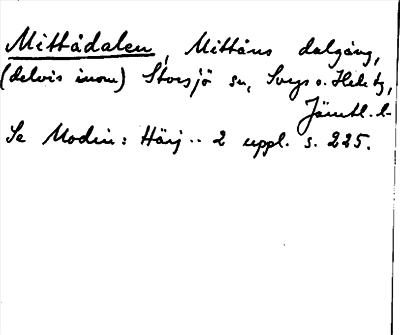 Mittådalen, Mittåns dalgång,
(delvis inom) Storsjö sn, Svegs o. Hede tg,
Jämtl. l.
Se Modin: Härj.. 2 uppl. s. 225.